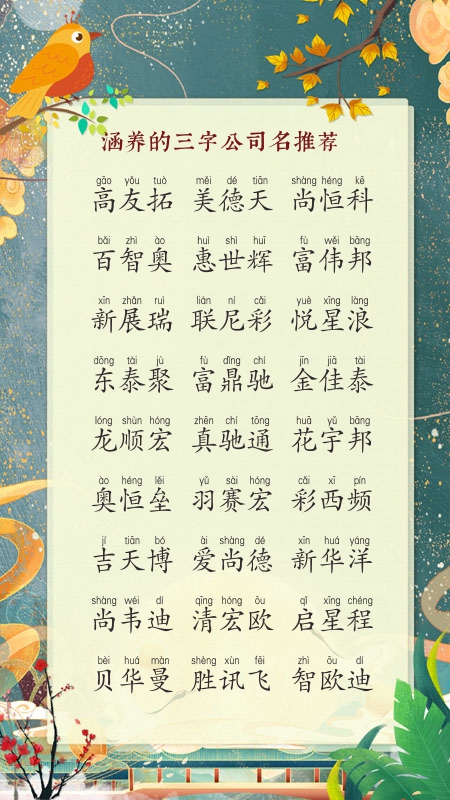 涵养的三字公司名推荐
gāo yǒu tuò měi dé tiān shàng héng kē
高友拓 美德天 尚恒科
bǎi zhì ào huì shì huī fù wěi bāng
百智奥 惠世辉 富伟邦
xīn zhǎn ruì lián ní cǎi yuè xīng làng
新展瑞 联尼彩 悦星浪
dōng tài jù fù dǐng chí jīn jiā tài
东泰聚 富鼎驰 金佳泰
lóng shùn hóng zhēn chí tōng huā yǔ bāng
龙顺宏 真驰通 花宇邦
ào héng lěi yǔ sài hóng cǎi xī pín
奥恒垒 羽赛宏 彩西频
jí tiān bó ài shàng dé xīn huá yáng
吉天博 爱尚德 新华洋
shàng wéi dí qīng hóng ōu qǐ xīng chéng
尚韦迪 清宏欧 启星程
bèi huá màn shèng xùn fēi zhì ōu dí
贝华曼 胜讯飞 智欧迪